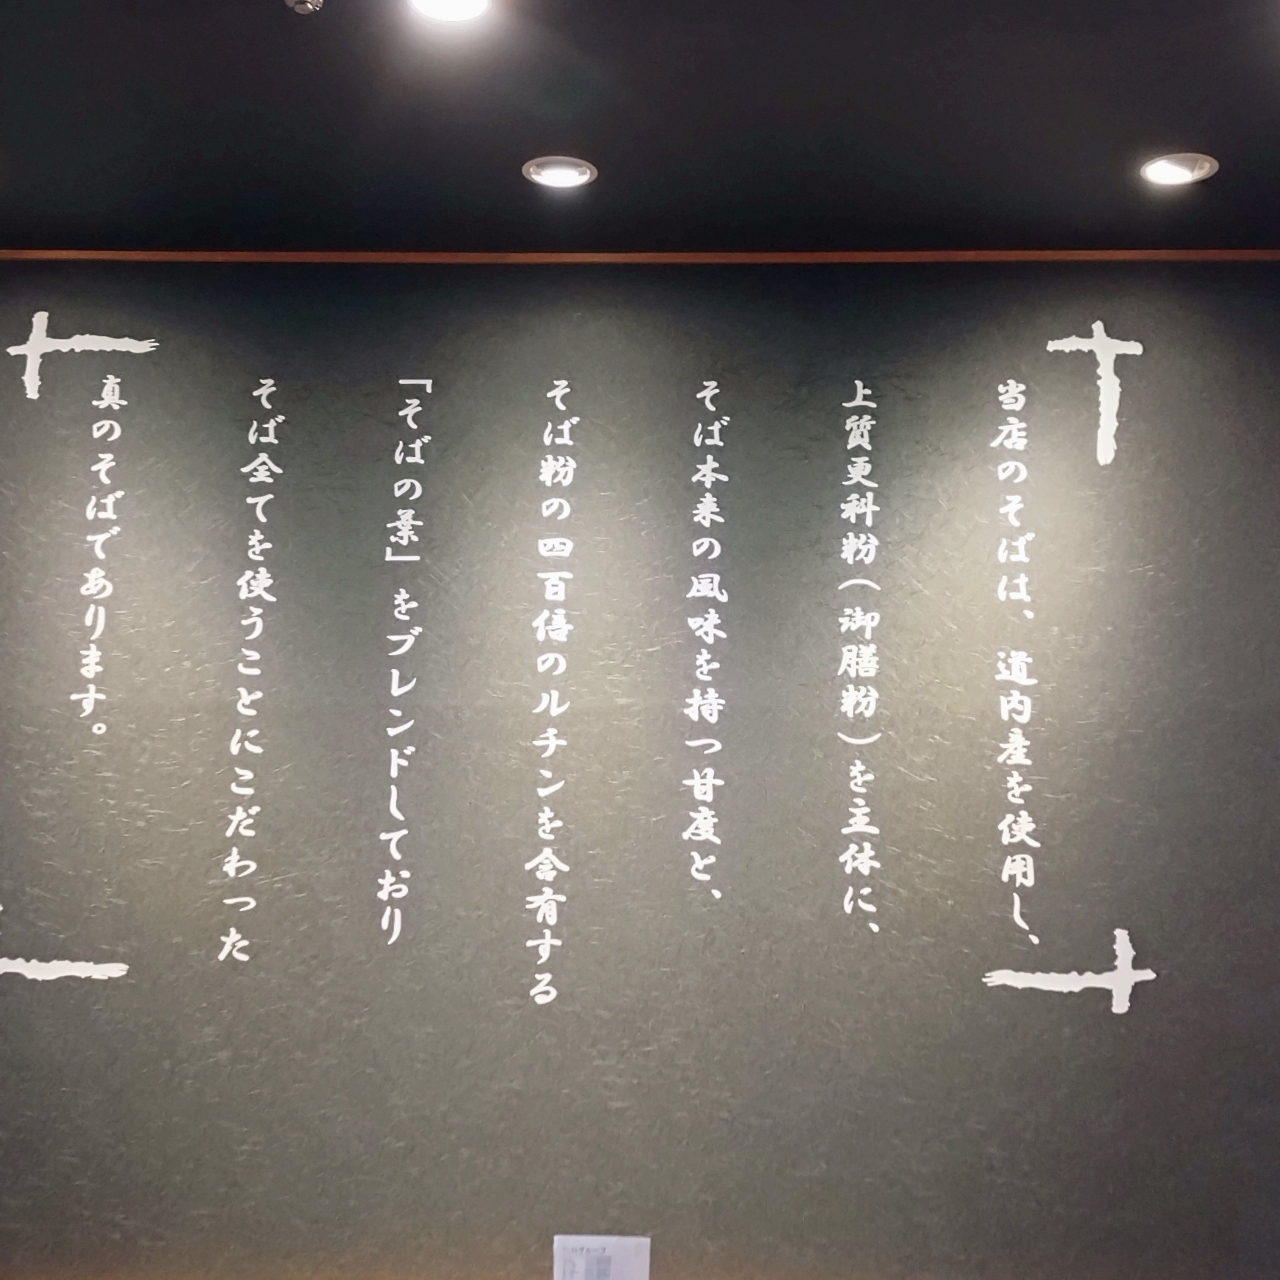 当店のそばは、道内産を使用し、
上質更科粉（御膳粉）を主体に、
そば本来の風味を持つ甘度と、
そば粉の四百倍のルチンを含有する
「そばの葉」をブレンドしており
そば全てを使うことにこだわった
真のそばであります。